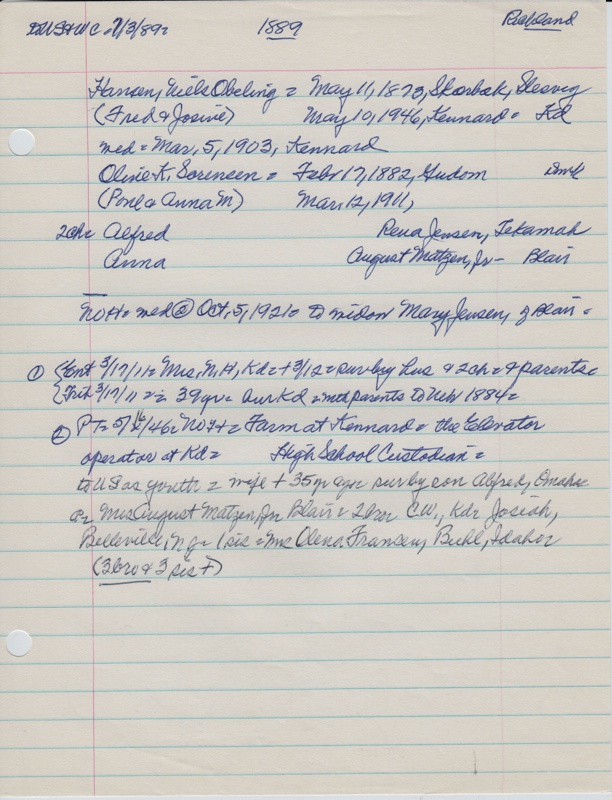 1889 Richland
Hansen, Niels Obeling = May 11, 1873, Skorbak, Slesvig
(Fred & Josine) May 10, 1946, Kennard = Kd
med = Mar, 5, 1903, Kennard
Oline K. Sorensen = Febr 17, 1882, Gudom Dmk
(Poul & Anna M) Mar, 12, 1911,
2 ch = Alfred Rena Jensen, Tekamah
Anna August Matzen, Jr - Blair
NOH = med ② Oct, 5, 1921 = to widow Mary Jensen, of Blair =
① Ent 3/17/11 = Mrs, N.H, Kd = + 3/12 = surv by hus & 2 ch = & parents =
3/17/11 = 29 yr = our Kd = parents to Neb 1884 =
② PT = 5/16/46 = NOH = Farm at Kennard = the Elevator
operator at Kd = High School Custodian =
to US as youth = wife + 35 yr ago = surv by son Alfred, Omaha
Mrs August Matzen, Jr Blair = 2 bro = C.W, Kd = Josiah,
Belleville, = 1 sis = Mrs Olena Fransen, Buhl, Idaho =
(3 bro & 3 sis +)